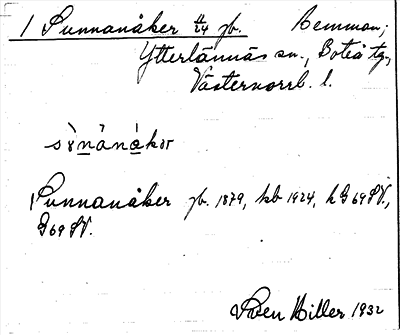 1 Sunnanåker 4/24 jb. Hemman;
Ytterlännäs sn., Boteå tg.,
Västernorrl. l.
Sunnanåker jb. 1879, kb 1924, h G 69 SV.,
G 69 SV.
Sven Hiller 1932